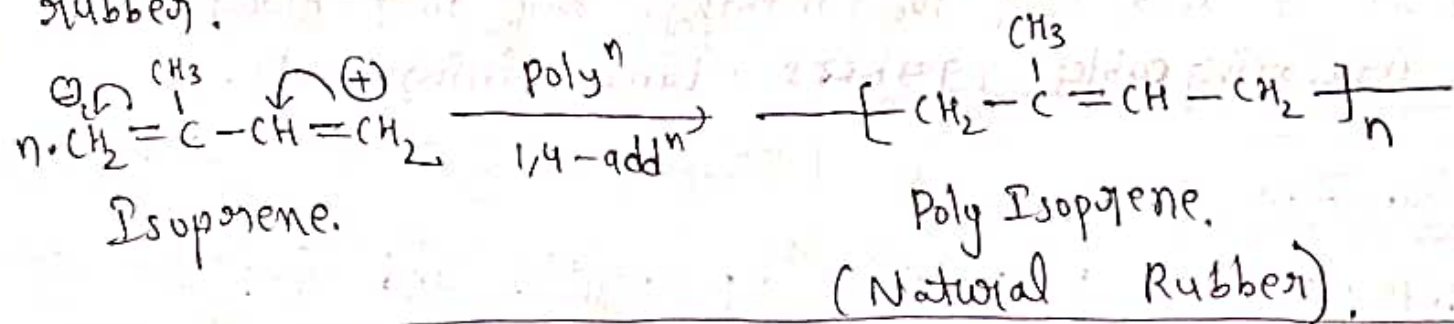 rubber.
n.CH₂ = C(CH₃) – CH = CH₂ ⊖ ⊕ polyⁿ 1,4-addⁿ –[CH₂ – C(CH₃) = CH – CH₂]–n
Isoprene.
Poly Isoprene.
(Natural Rubber).